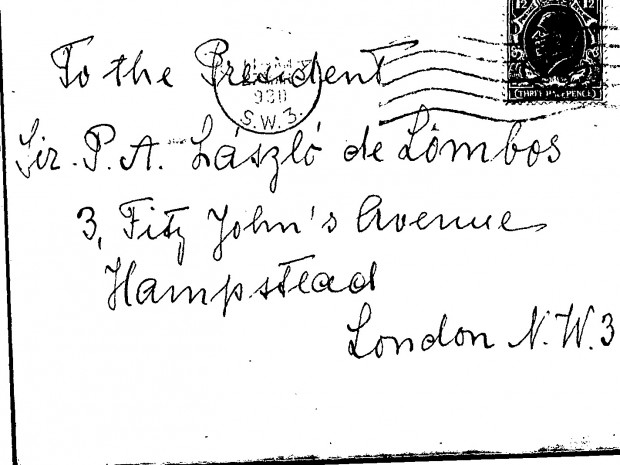 To the President
Sir. P. A. László de Lômbos
3, Fitz John's Avenue
Hampstead
London N.W.3
930
S.W.3.
1½ 1½
THREE HALFPENCE